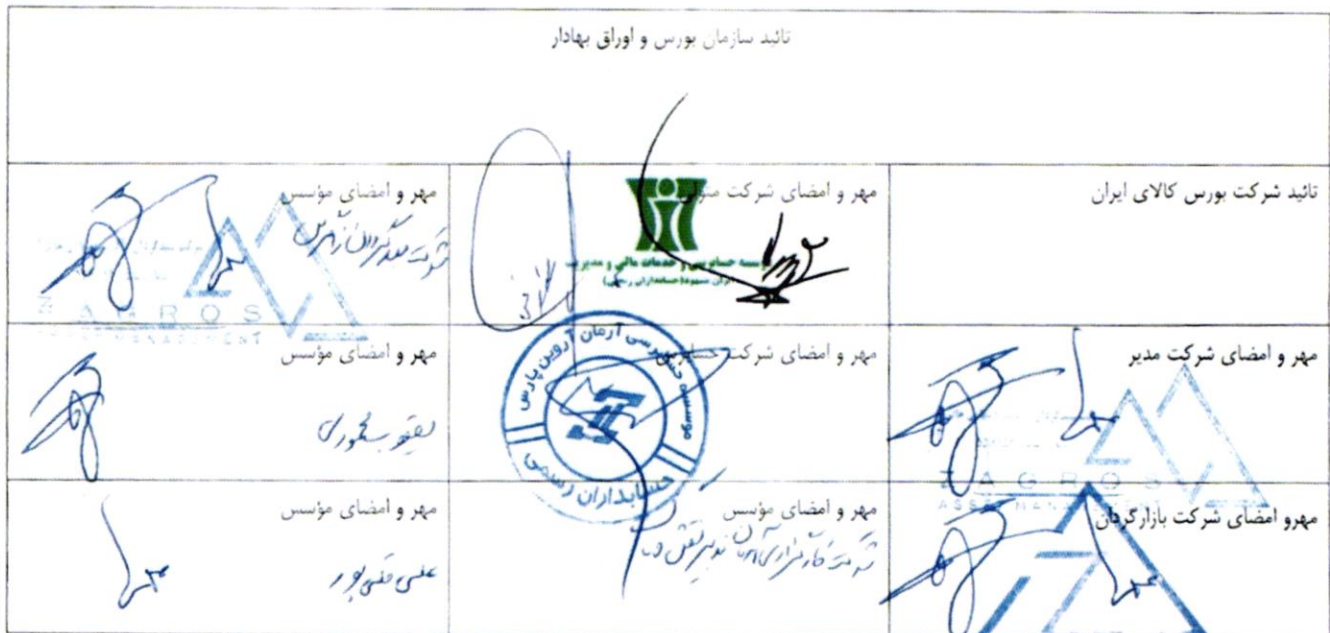 تائید سازمان بورس و اوراق بهادار
تائید شرکت بورس کالای ایران
مهر و امضای شرکت متولی
موسسه حسابرسی و خدمات مالی و مدیریت
ایران مشهود (حسابداران رسمی)
مهر و امضای مؤسس
شرکت سبدگردان زاگرس
ZAGROS
ASSET MANAGEMENT
مهر و امضای شرکت مدیر
ZAGROS
ASSET MANAGEMENT
مهر و امضای شرکت حسابرس
موسسه حسابرسی آرمان آروین پارس
حسابداران رسمی
مهر و امضای مؤسس
مهرو امضای شرکت بازارگردان
مهر و امضای مؤسس
شرکت کارگزاری
مهر و امضای مؤسس
علی تقی پور